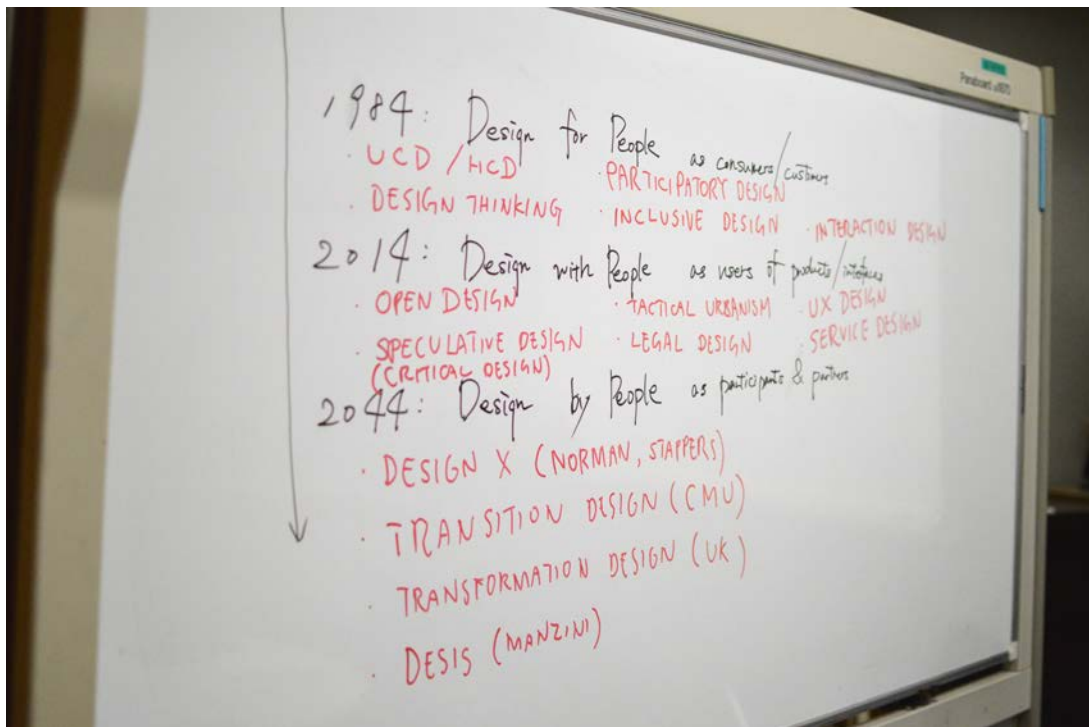 1984: Design for People as consumers/customers
· UCD / HCD · PARTICIPATORY DESIGN
· DESIGN THINKING · INCLUSIVE DESIGN · INTERACTION DESIGN
2014: Design with People as users of products/interfaces
· OPEN DESIGN · TACTICAL URBANISM · UX DESIGN
· SPECULATIVE DESIGN · LEGAL DESIGN · SERVICE DESIGN
(CRITICAL DESIGN)
2044: Design by People as participants & partners
· DESIGN X (NORMAN, STAPPERS)
· TRANSITION DESIGN (CMU)
· TRANSFORMATION DESIGN (UK)
· DESIS (MANZINI)